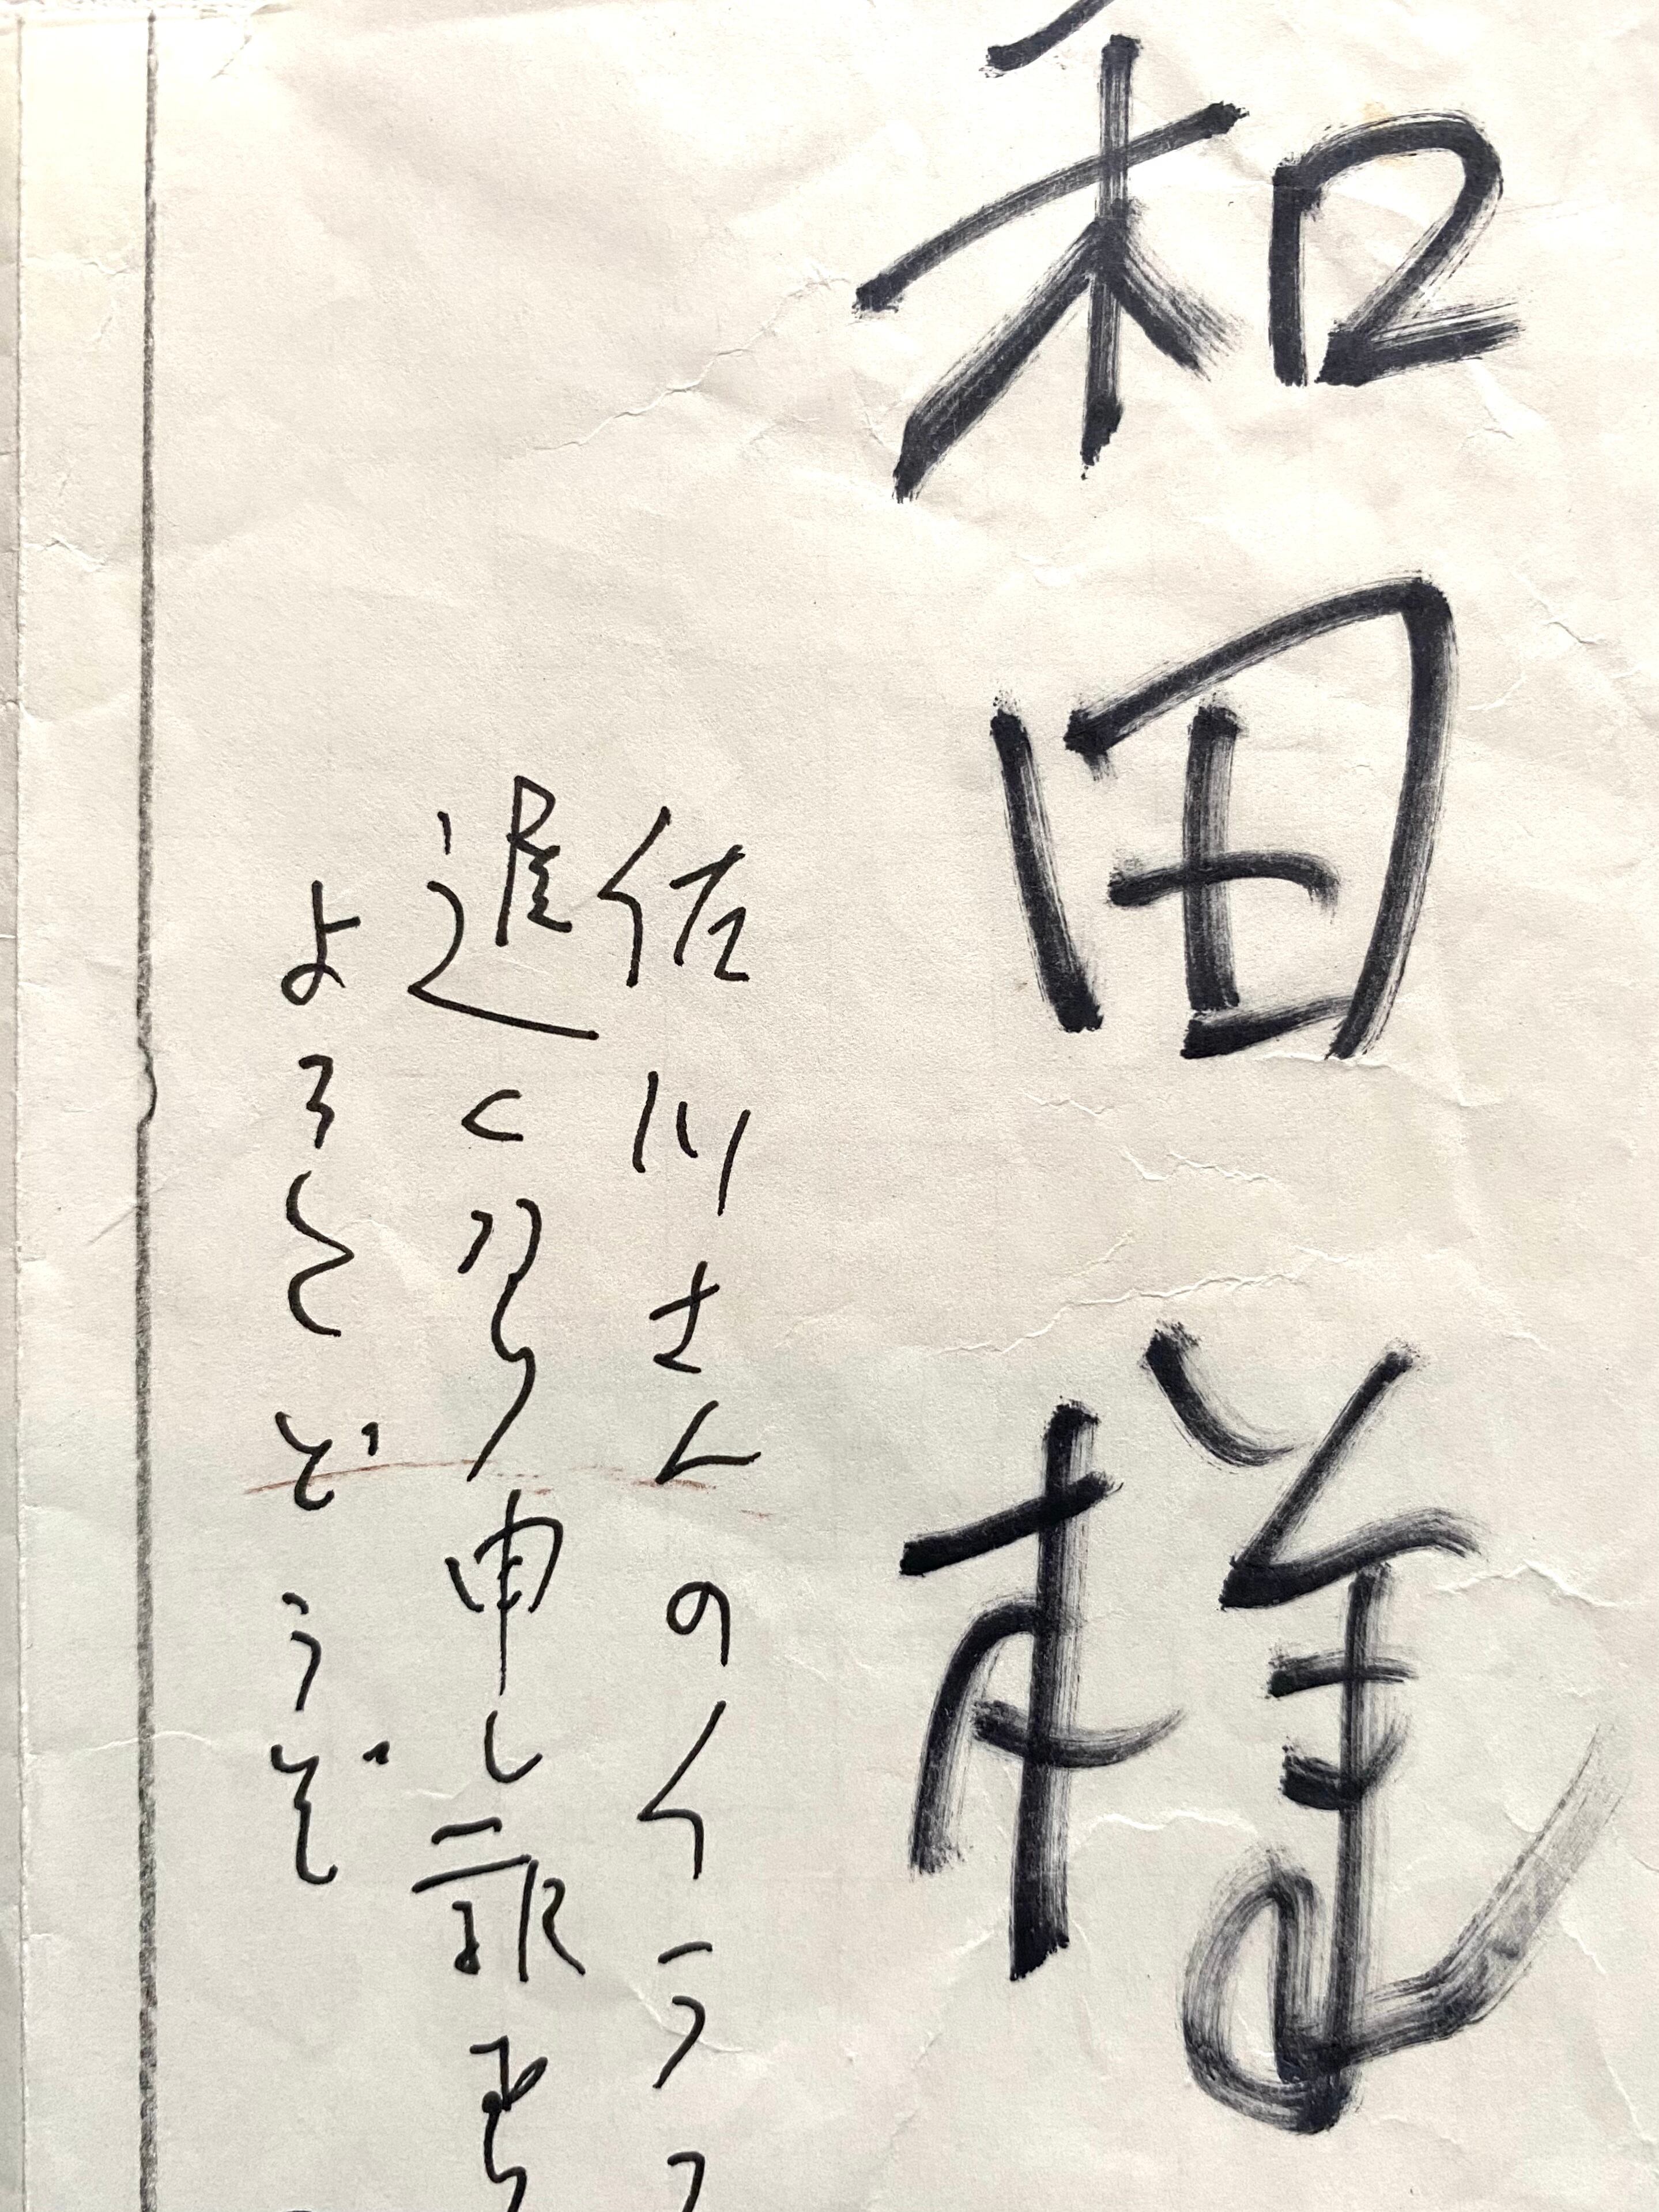 和田様
佐川さんのイラス
遅くなり申し訳あり
よろしくどうぞ